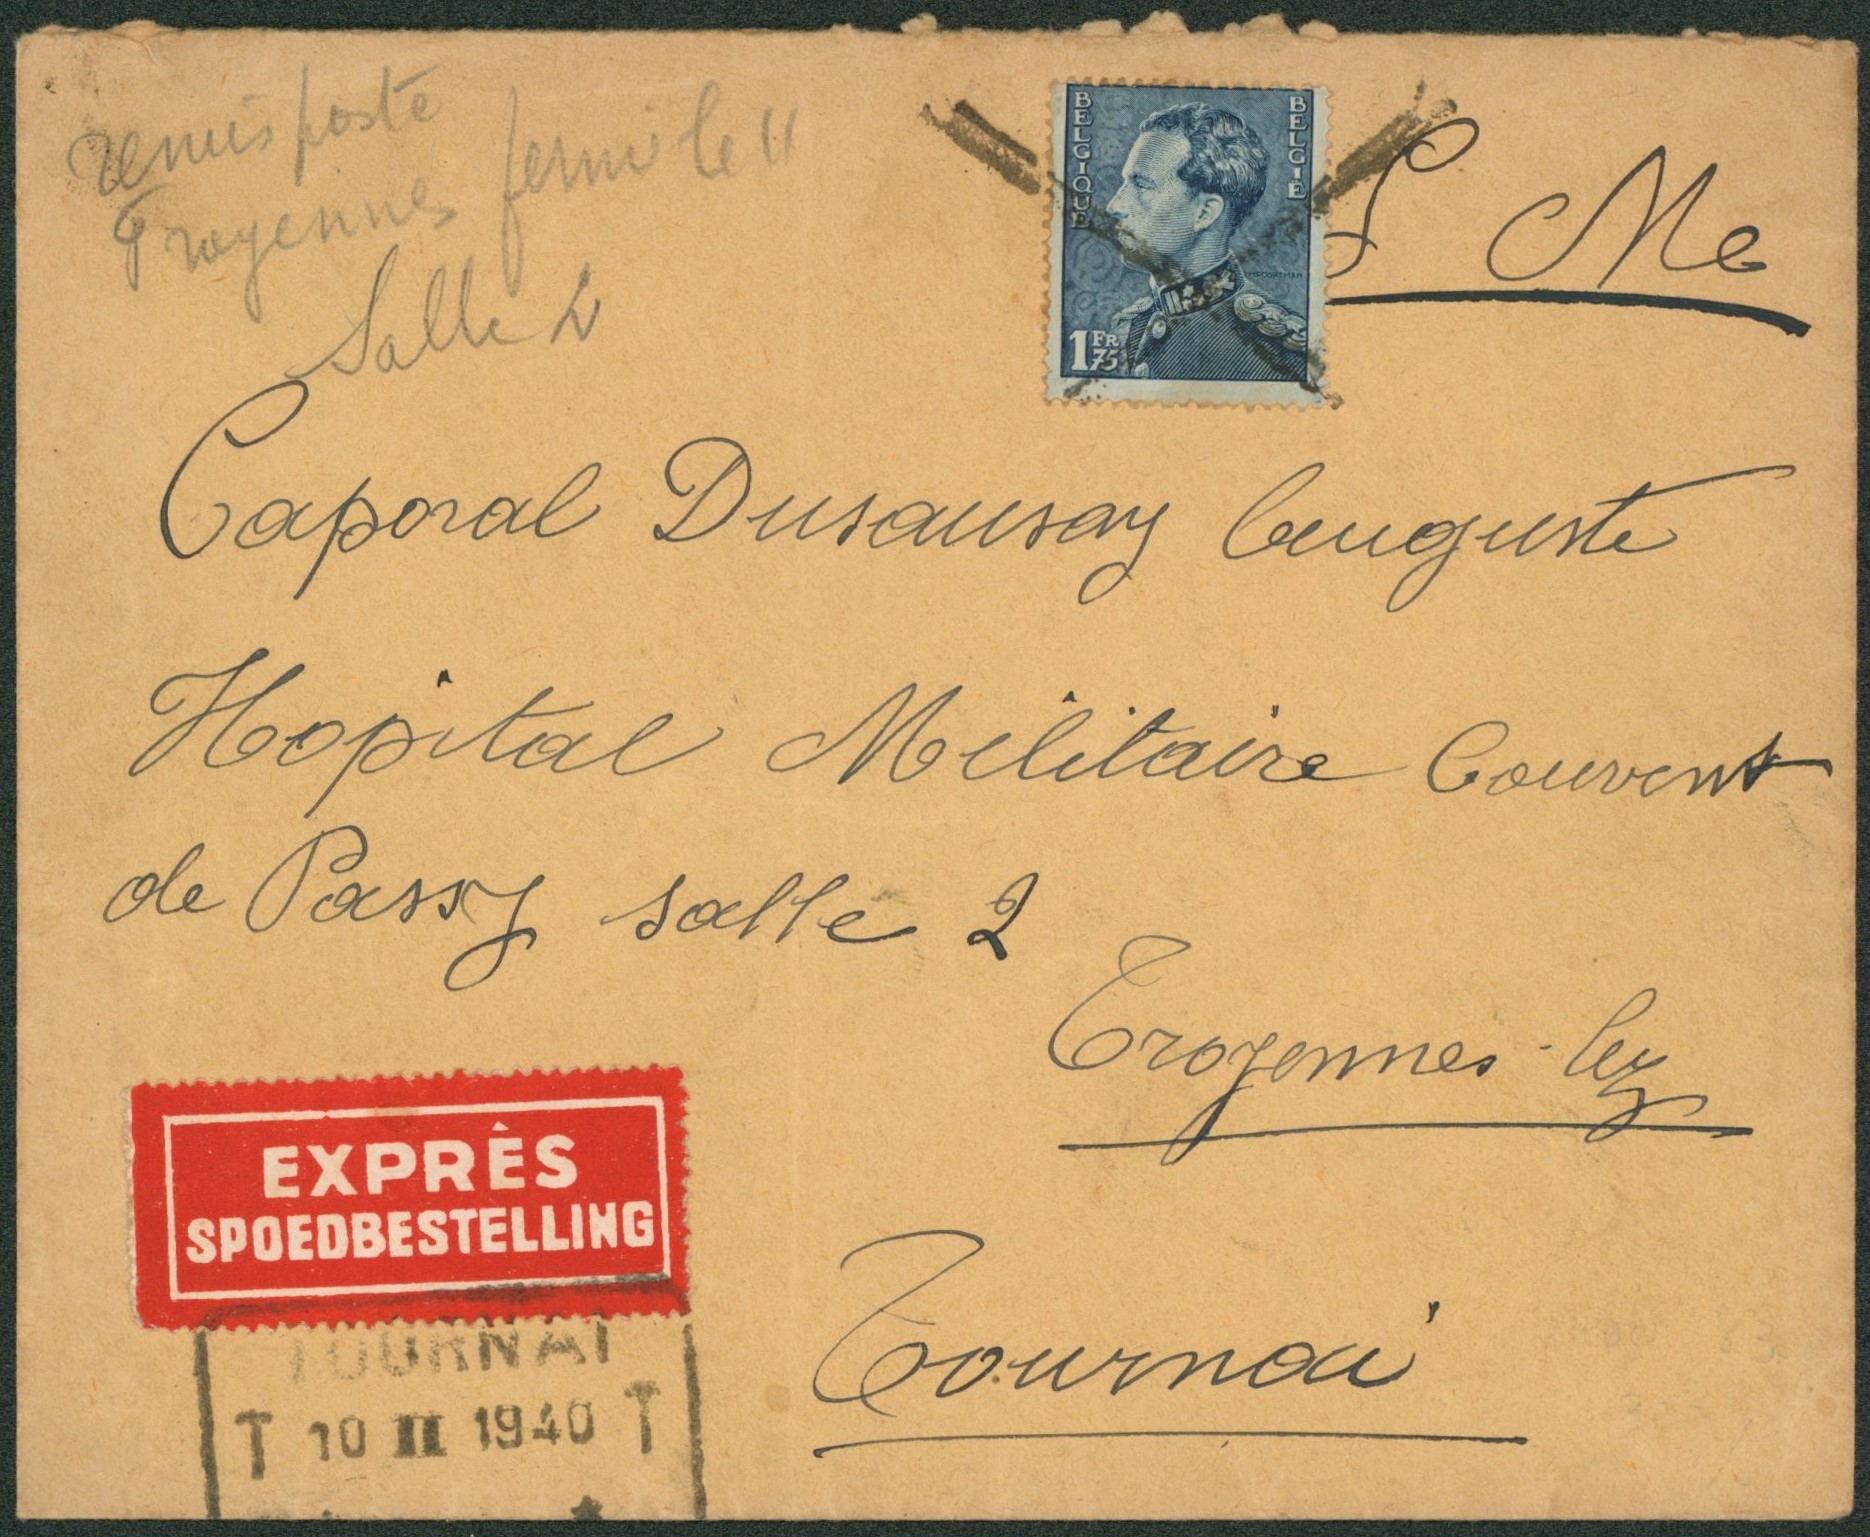 remis poste
Froyennes fermé le 11
Salle 2
BELGIQUE
BELGIË
1 FR 75
S Me
Caporal Dusausay Auguste
Hopital Militaire Couvent
de Passy salle 2
Froyennes-lez
Tournai
EXPRÈS
SPOEDBESTELLING
TOURNAI
T 10 II 1940 T